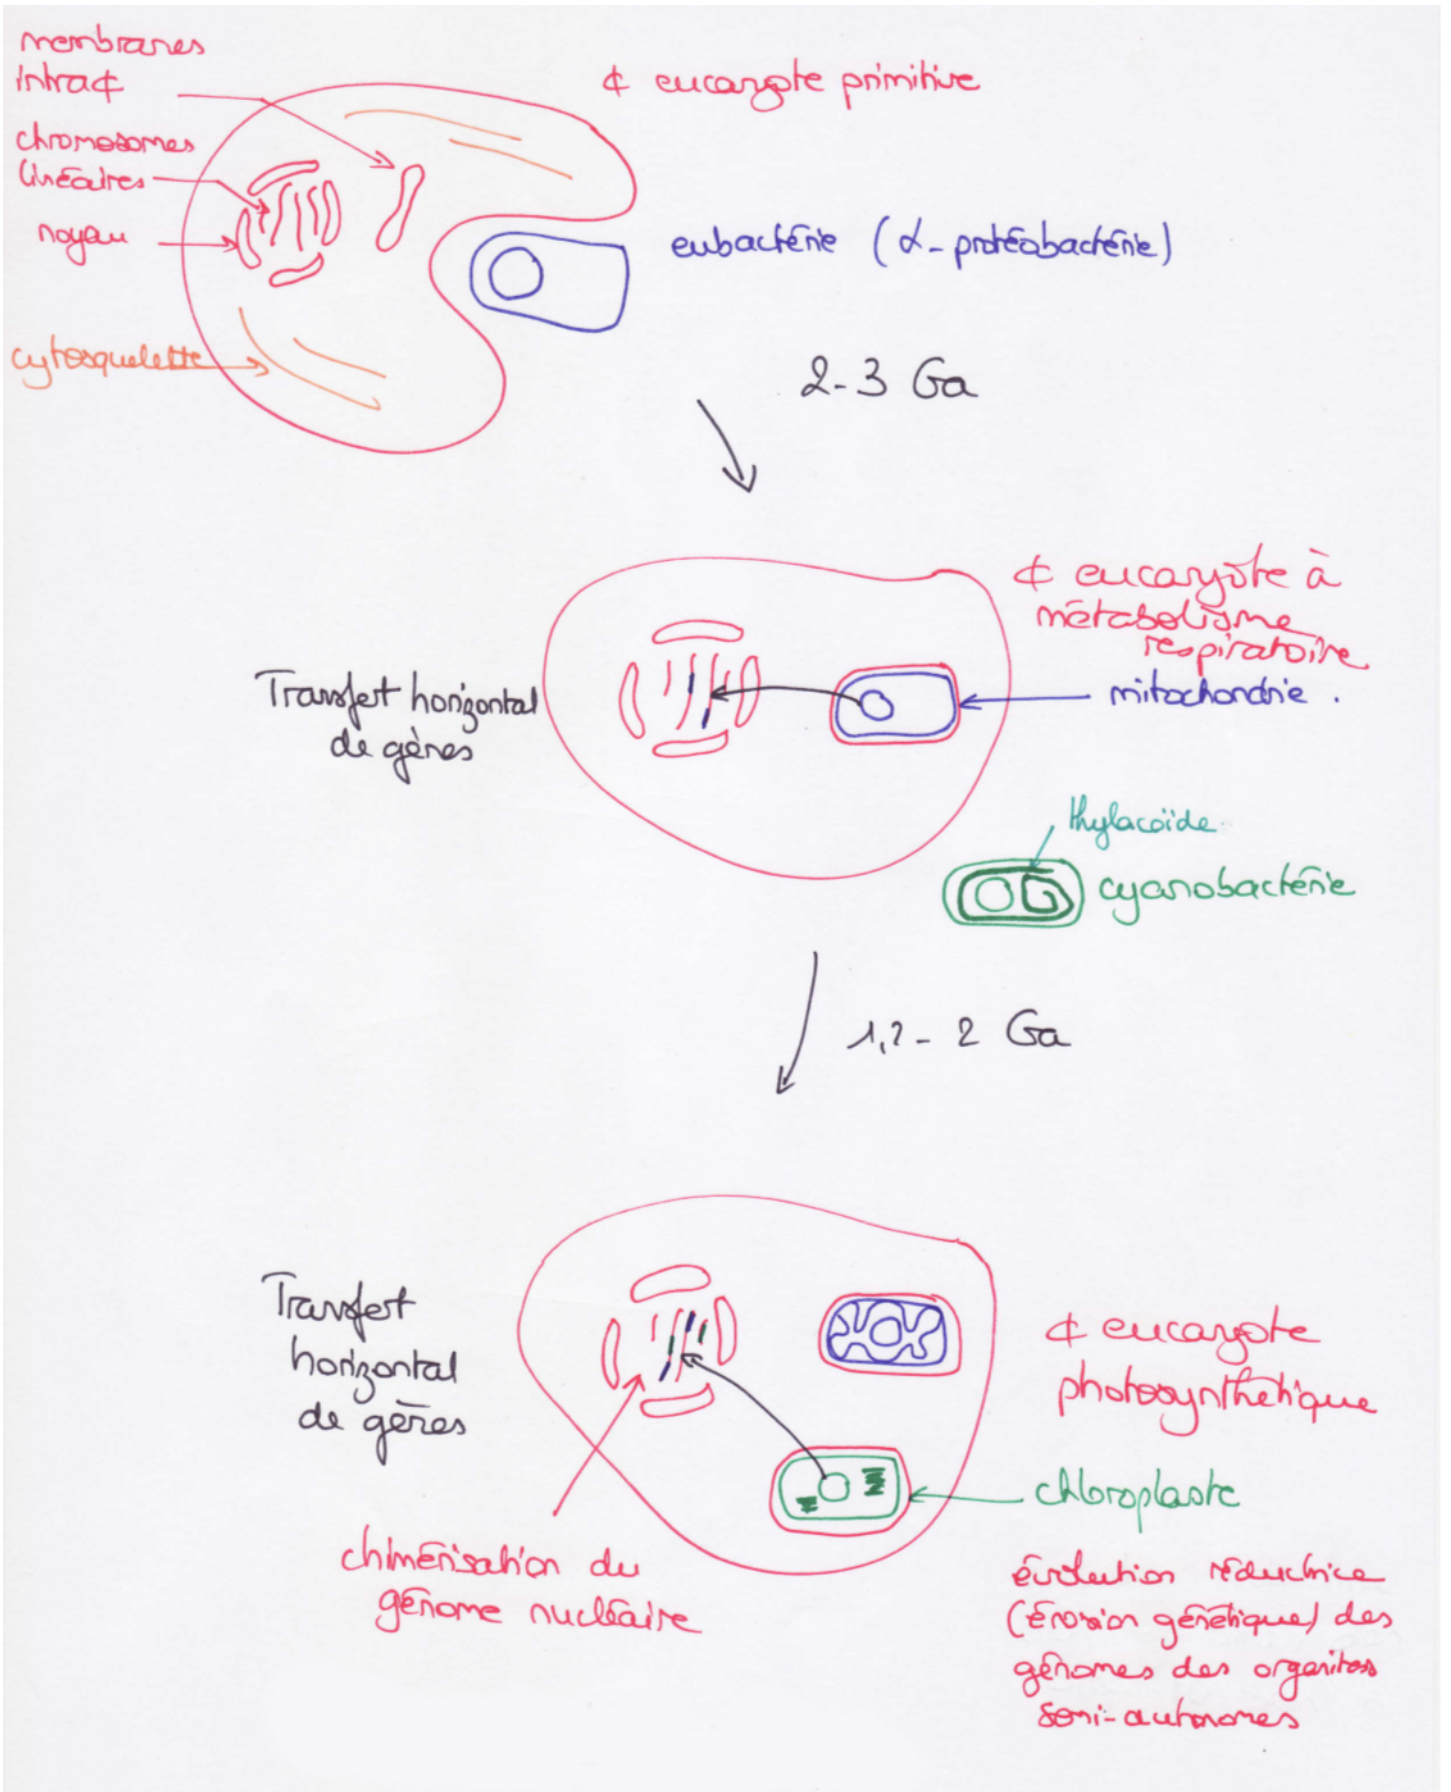 membranes
intra¢
¢ eucaryote primitive
chromosomes
linéaires
noyau
eubactérie (α-protéobactérie)
cytosquelette
2-3 Ga
¢ eucaryote à
métabolisme
respiratoire
Transfert horizontal
de gènes
mitochondrie.
thylacoïde
cyanobactérie
1,?- 2 Ga
Transfert
horizontal
de gènes
¢ eucaryote
photosynthétique
chloroplaste
chimérisation du
génome nucléaire
évolution réductrice
(érosion génétique) des
génomes des organites
semi-autonomes